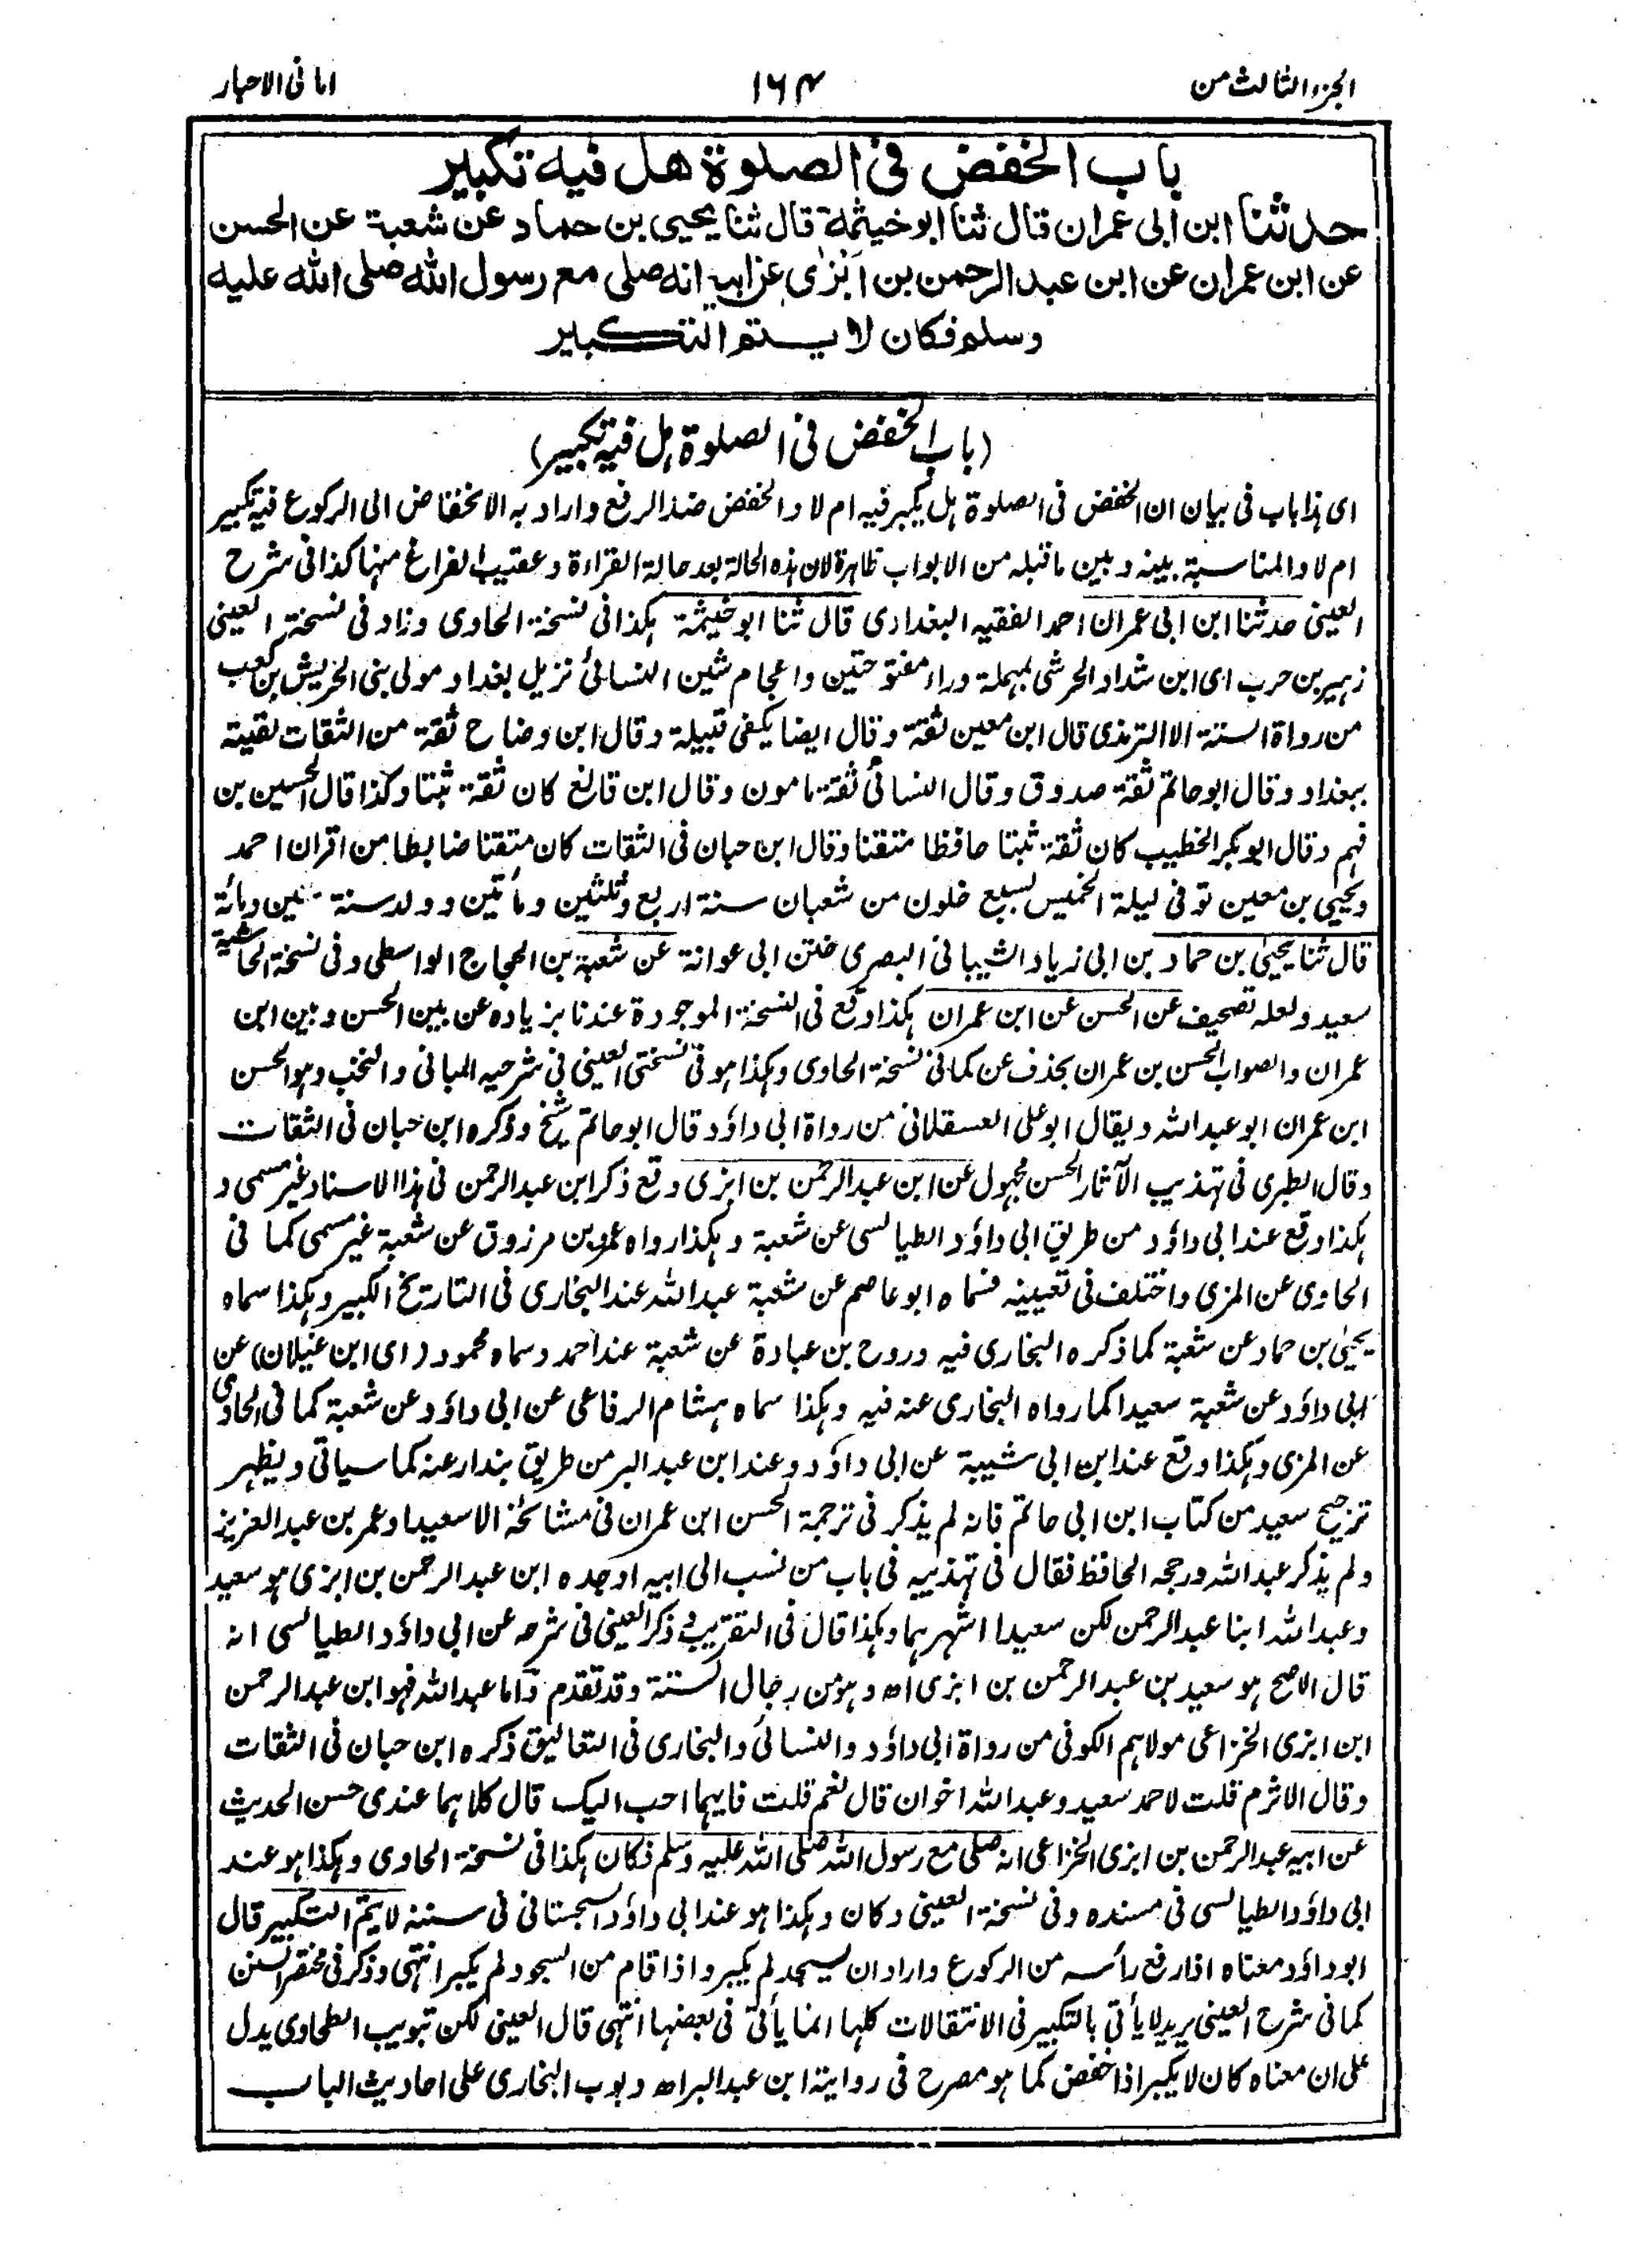 الجزء الثالث من
۱۶۴
امانی الاحبار
باب الخفض فی الصلوة هل فیه تکبیر
حدثنا ابن ابی عمران قال ثنا ابوخیثمة قال ثنا یحیی بن حماد عن شعبة عن الحسن
عن ابن عمران عن ابن عبدالرحمن بن ابزٰی عن ابیه انه صلی مع رسول الله صلی الله علیه
وسلم فکان لا یتم التکبیر
(باب الخفض فی الصلوة ہل فیه تکبیر)
ای ہذا باب فی بیان ان الخفض فی الصلوة ہل یکبر فیه ام لا والخفض ضد الرفع واراد به الانخفاض الی الرکوع فیه تکبیر
ام لا والمناسبة بینه وبین ما قبله من الابواب ظاہرة لان ہذه الحالة بعد حالة القراءة وعقیب الفراغ منہا کذا فی شرح
العینی حدثنا ابن ابی عمران احمد الفقیه البغدادی قال ثنا ابوخیثمة ہکذا فی نسخة الحاوی وزاد فی نسخة العینی
زہیر بن حرب ای ابن شداد الحرشی بمہملة وراء مفتوحتین واعجام شین النسائی نزیل بغداد مولی بنی الحریش بن کعب
من رواة الستة الا الترمذی قال ابن معین ثقة وقال ایضا یکفی قبیلة وقال ابن وضاح ثقة من الثقات لقیته
ببغداد وقال ابوحاتم ثقة صدوق وقال النسائی ثقة مامون وقال ابن قانع کان ثقة ثبتا وکذا قال الحسین بن
فہم وقال ابوبکر الخطیب کان ثقة ثبتا حافظا متقنا وقال ابن حبان فی الثقات کان متقنا ضابطا من اقران احمد
ویحیی بن معین توفی لیلة الخمیس لسبع خلون من شعبان سنة اربع وثلثین ومأتین وولد سنة ومائة
قال ثنا یحییٰ بن حماد بن ابی زیاد الشیبانی البصری ختن ابی عوانة عن شعبة بن الحجاج الواسطی وفی نسخة الحاشیة
سعید ولعله تصحیف عن الحسن عن ابن عمران ہکذا وقع فی النسخة الموجودة عندنا بزیاده عن بین الحسن وبین ابن
عمران والصواب الحسن بن عمران بحذف عن کما فی نسخة الحاوی وہکذا ہو فی نسختی العینی فی شرحیه المبانی والنخب وہو الحسن
ابن عمران ابوعبدالله ویقال ابوعلی العسقلانی من رواة ابی داؤد قال ابوحاتم شیخ وذکره ابن حبان فی الثقات
وقال الطبری فی تہذیب الآثار الحسن مجہول عن ابن عبدالرحمن بن ابزی وقع ذکر ابن عبدالرحمن فی ہذا الاسناد غیر مسمی و
ہکذا وقع عند ابی داؤد من طریق ابی داؤد الطیالسی عن شعبة وہکذا رواه عمرو بن مرزوق عن شعبة غیر مسمی کما فی
الحاوی عن المزی واختلف فی تعیینه فسماه ابوعاصم عن شعبة عبدالله عند البخاری فی التاریخ الکبیر وہکذا سماه
یحییٰ بن حماد عن شعبة کما ذکره البخاری فیه وروح بن عبادة عن شعبة عند احمد وسماه محمود (ای ابن غیلان) عن
ابی داؤد عن شعبة سعیدا کما رواه البخاری عنه فیه وہکذا سماه ہشام الرفاعی عن ابی داؤد عن شعبة کما فی الحاوی
عن المزی وہکذا وقع عند ابن ابی شیبة عن ابی داؤد وعند ابن عبدالبر من طریق بندار عنه کما سیاتی ویظہر
ترجیح سعید من کتاب ابن ابی حاتم فانه لم یذکر فی ترجمة الحسن ابن عمران فی مشائخه الا سعیدا وعمر بن عبدالعزیز
ولم یذکر عبدالله ورجحه الحافظ فقال فی تہذیبه فی باب من نسب الی ابیه او جده ابن عبدالرحمن بن ابزی ہو سعید
وعبدالله ابنا عبدالرحمن لکن سعیدا اشہرہما وہکذا قال فی التقریب وذکر العینی فی شرحه عن ابی داؤد الطیالسی انه
قال الاصح ہو سعید بن عبدالرحمن بن ابزی اھ وہو من رجال الستة وقد تقدم واما عبدالله فہو ابن عبدالرحمن
ابن ابزی الخزاعی مولاہم الکوفی من رواة ابی داؤد والنسائی والبخاری فی التعالیق ذکره ابن حبان فی الثقات
وقال الاثرم قلت لاحمد سعید وعبدالله اخوان قال نعم قلت فایہما احب الیک قال کلاہما عندی حسن الحدیث
عن ابیه عبدالرحمن بن ابزی الخزاعی انه صلی مع رسول الله صلی الله علیه وسلم فکان ہکذا فی نسخة الحاوی وہکذا ہو عند
ابی داؤد الطیالسی فی مسنده وفی نسخة العینی وکان وہکذا ہو عند ابی داؤد السجستانی فی سننه لا یتم التکبیر قال
ابوداؤد معناه اذا رفع رأسه من الرکوع واراد ان یسجد لم یکبر واذا قام من السجود لم یکبر انتہی وذکر فی مختصر السنن
کما فی شرح العینی یرید لا یأتی بالتکبیر فی الانتقالات کلہا انما یأتی فی بعضہا انتہی قال العینی لکن تبویب الطحاوی یدل
علی ان معناه کان لا یکبر اذا خفض کما ہو مصرح فی روایة ابن عبدالبر اھ وبوب البخاری علی احادیث الباب